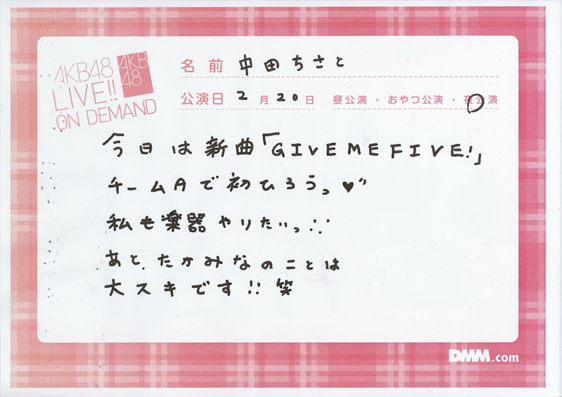 AKB48
LIVE!!
ON DEMAND
AKB
48
名前 中田ちさと
公演日 2月20日 昼公演・おやつ公演・夜公演
今日は新曲「GIVE ME FIVE!」
チームAで初ひろうっ♥"
私も楽器やりたいっ∵
あと、たかみなのことは
大スキです!! 笑
DMM.com